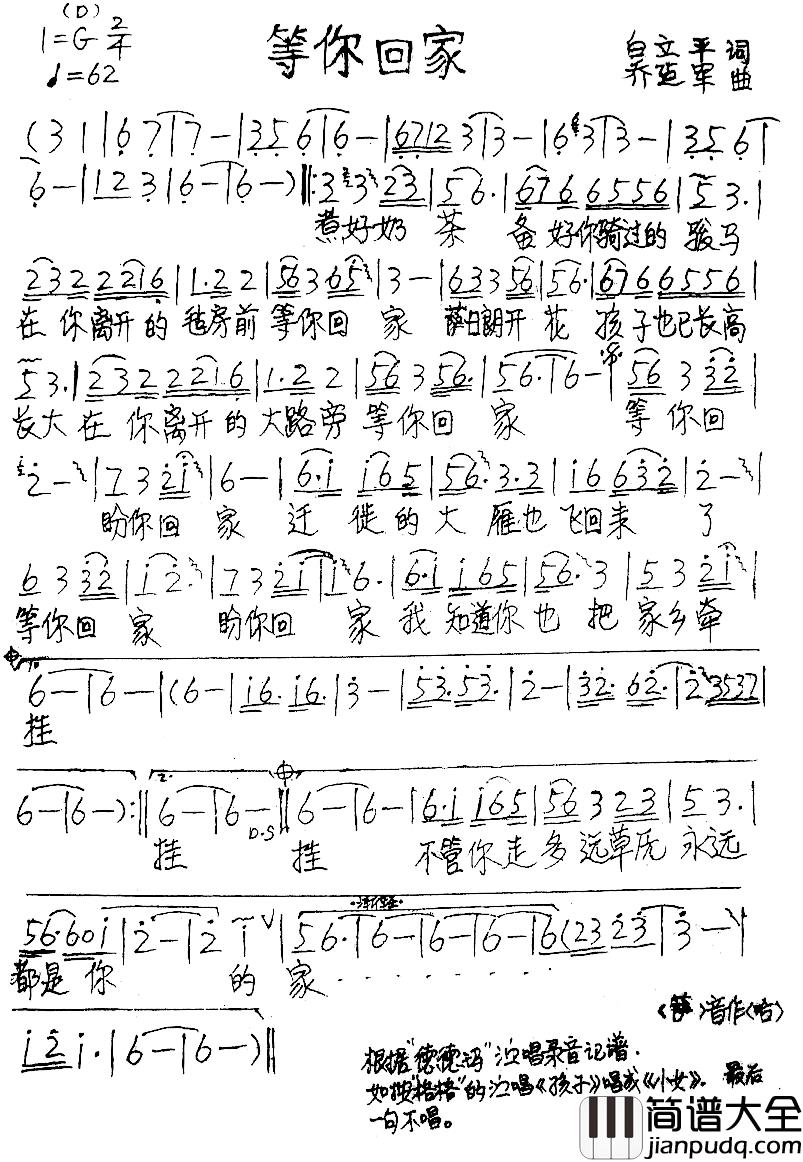 (D)
1=G 2/4
♩=62
等你回家
白立平 词
乔造军 曲
(3 1|6 7|7—|35 6|6—|6712 3|3—|6 3|3—|35 6|
6—|12 3|6—|6—)‖:3 3 23|5 6.|676 6556|5 3.|
煮好奶 茶 备 好你骑过的 骏马
232 2216|1.2 2|56 3 65|3—|63 3 56|56.|676 6556|
在 你离开的 毡房前 等你回 家 萨日朗开 花 孩子也已长高
5 3.|232 2216|1.2 2|56 3 56.|56.|6—|56 3 32|
长大 在 你离开的 大路旁 等你回 家 等 你回
2—|7 3 21|6—|6.1 165|56.3.3|16 632|2—|
盼你回 家 迁 徙的 大 雁也 飞回来 了
6 3 32|1 2.|7 3 21|1 6.|6.1 165|56. 3|5 3 21|
等你回 家 盼你回 家 我 知道你 也 把 家乡牵
6—|6—|(6—|16. 16.|3—|53. 53.|2—|32. 62.|2 3537|
挂
6—|6—):‖2. 6—|6—‖6—|6—|6.1 165|56 3 23|5 3.|
D.S
挂 挂 不管你走 多 远草原 永远
56.601|2—|2 1 ∨|56.|6—|6—|6—|6(23 23|3—|
都是 你 的 家- - - - - - - -
音作(哈)
121.|6—|6—)‖
根据"德德玛"演唱录音记谱.
如按"格格"的演唱《孩子》唱成《小女》. 最后
一句不唱。
简谱大全
jianpudq.com